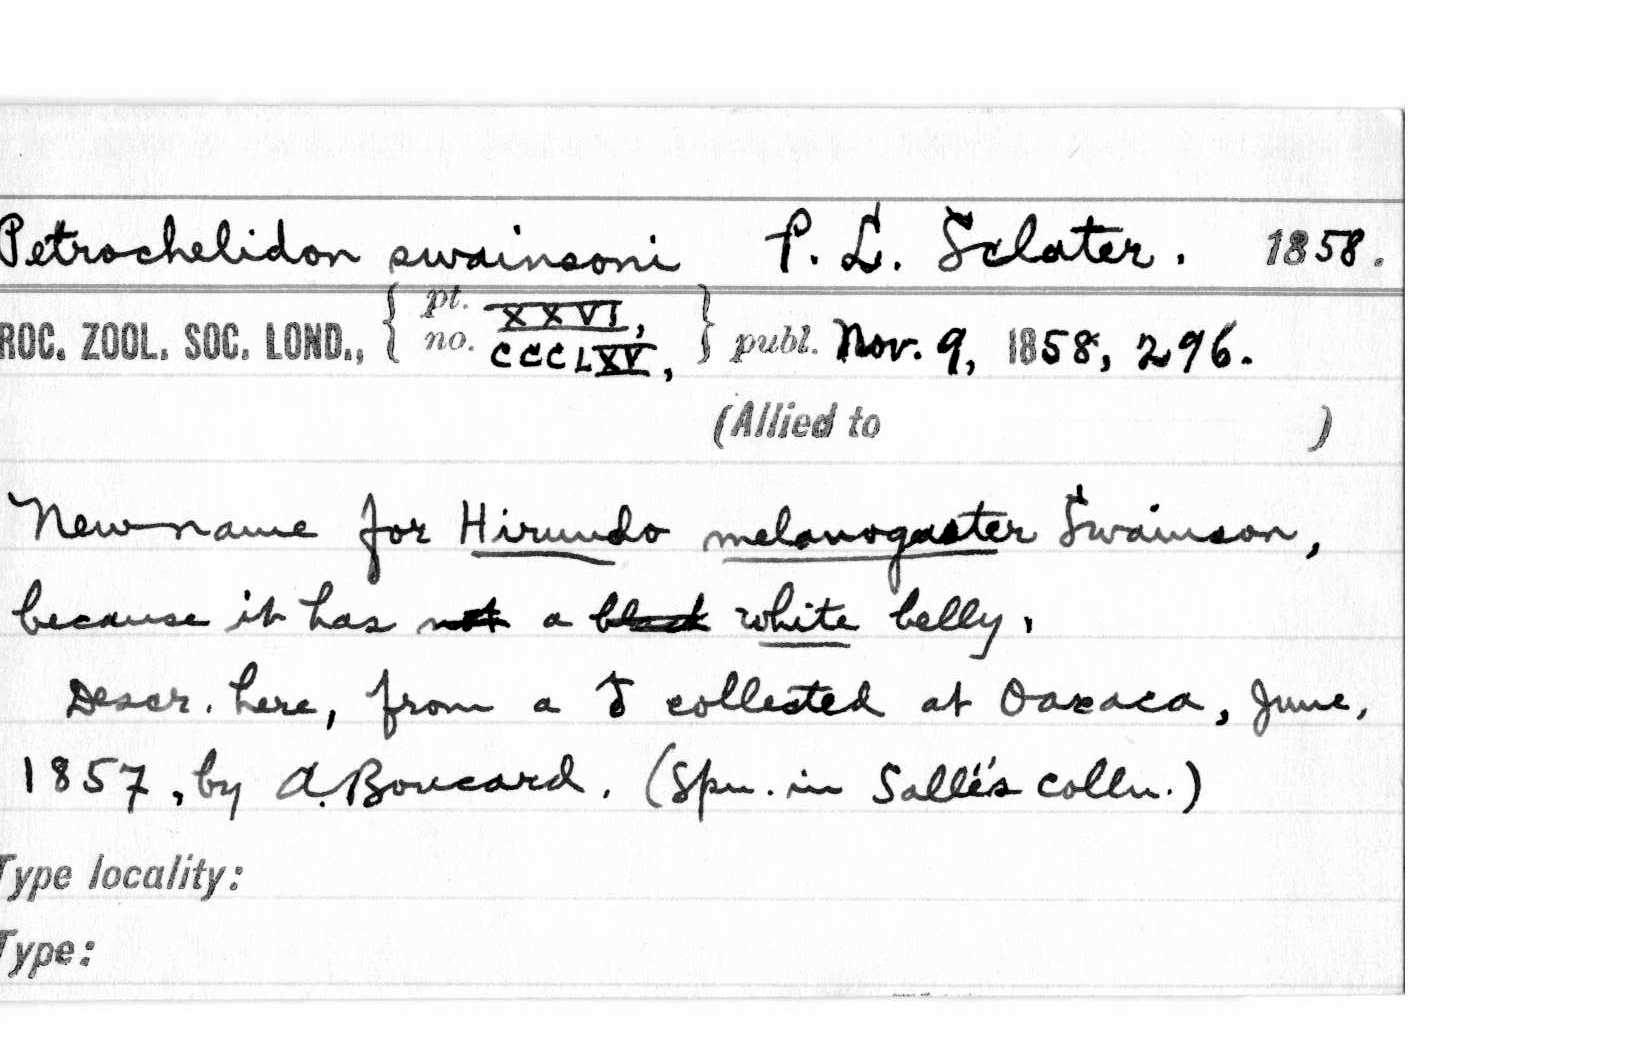 Petrochelidon swainsoni P. L. Sclater. 1858.
ROC. ZOOL. SOC. LOND., { pt. XXVI, no. CCCLXV, } publ. Nov. 9, 1858, 296.
(Allied to )
New name for Hirundo melanogaster Swainson,
because it has not a black white belly.
Descr. here, from a ♂ collected at Oaxaca, June,
1857, by A. Boucard. (Spn. in Sallé's colln.)
Type locality:
Type: